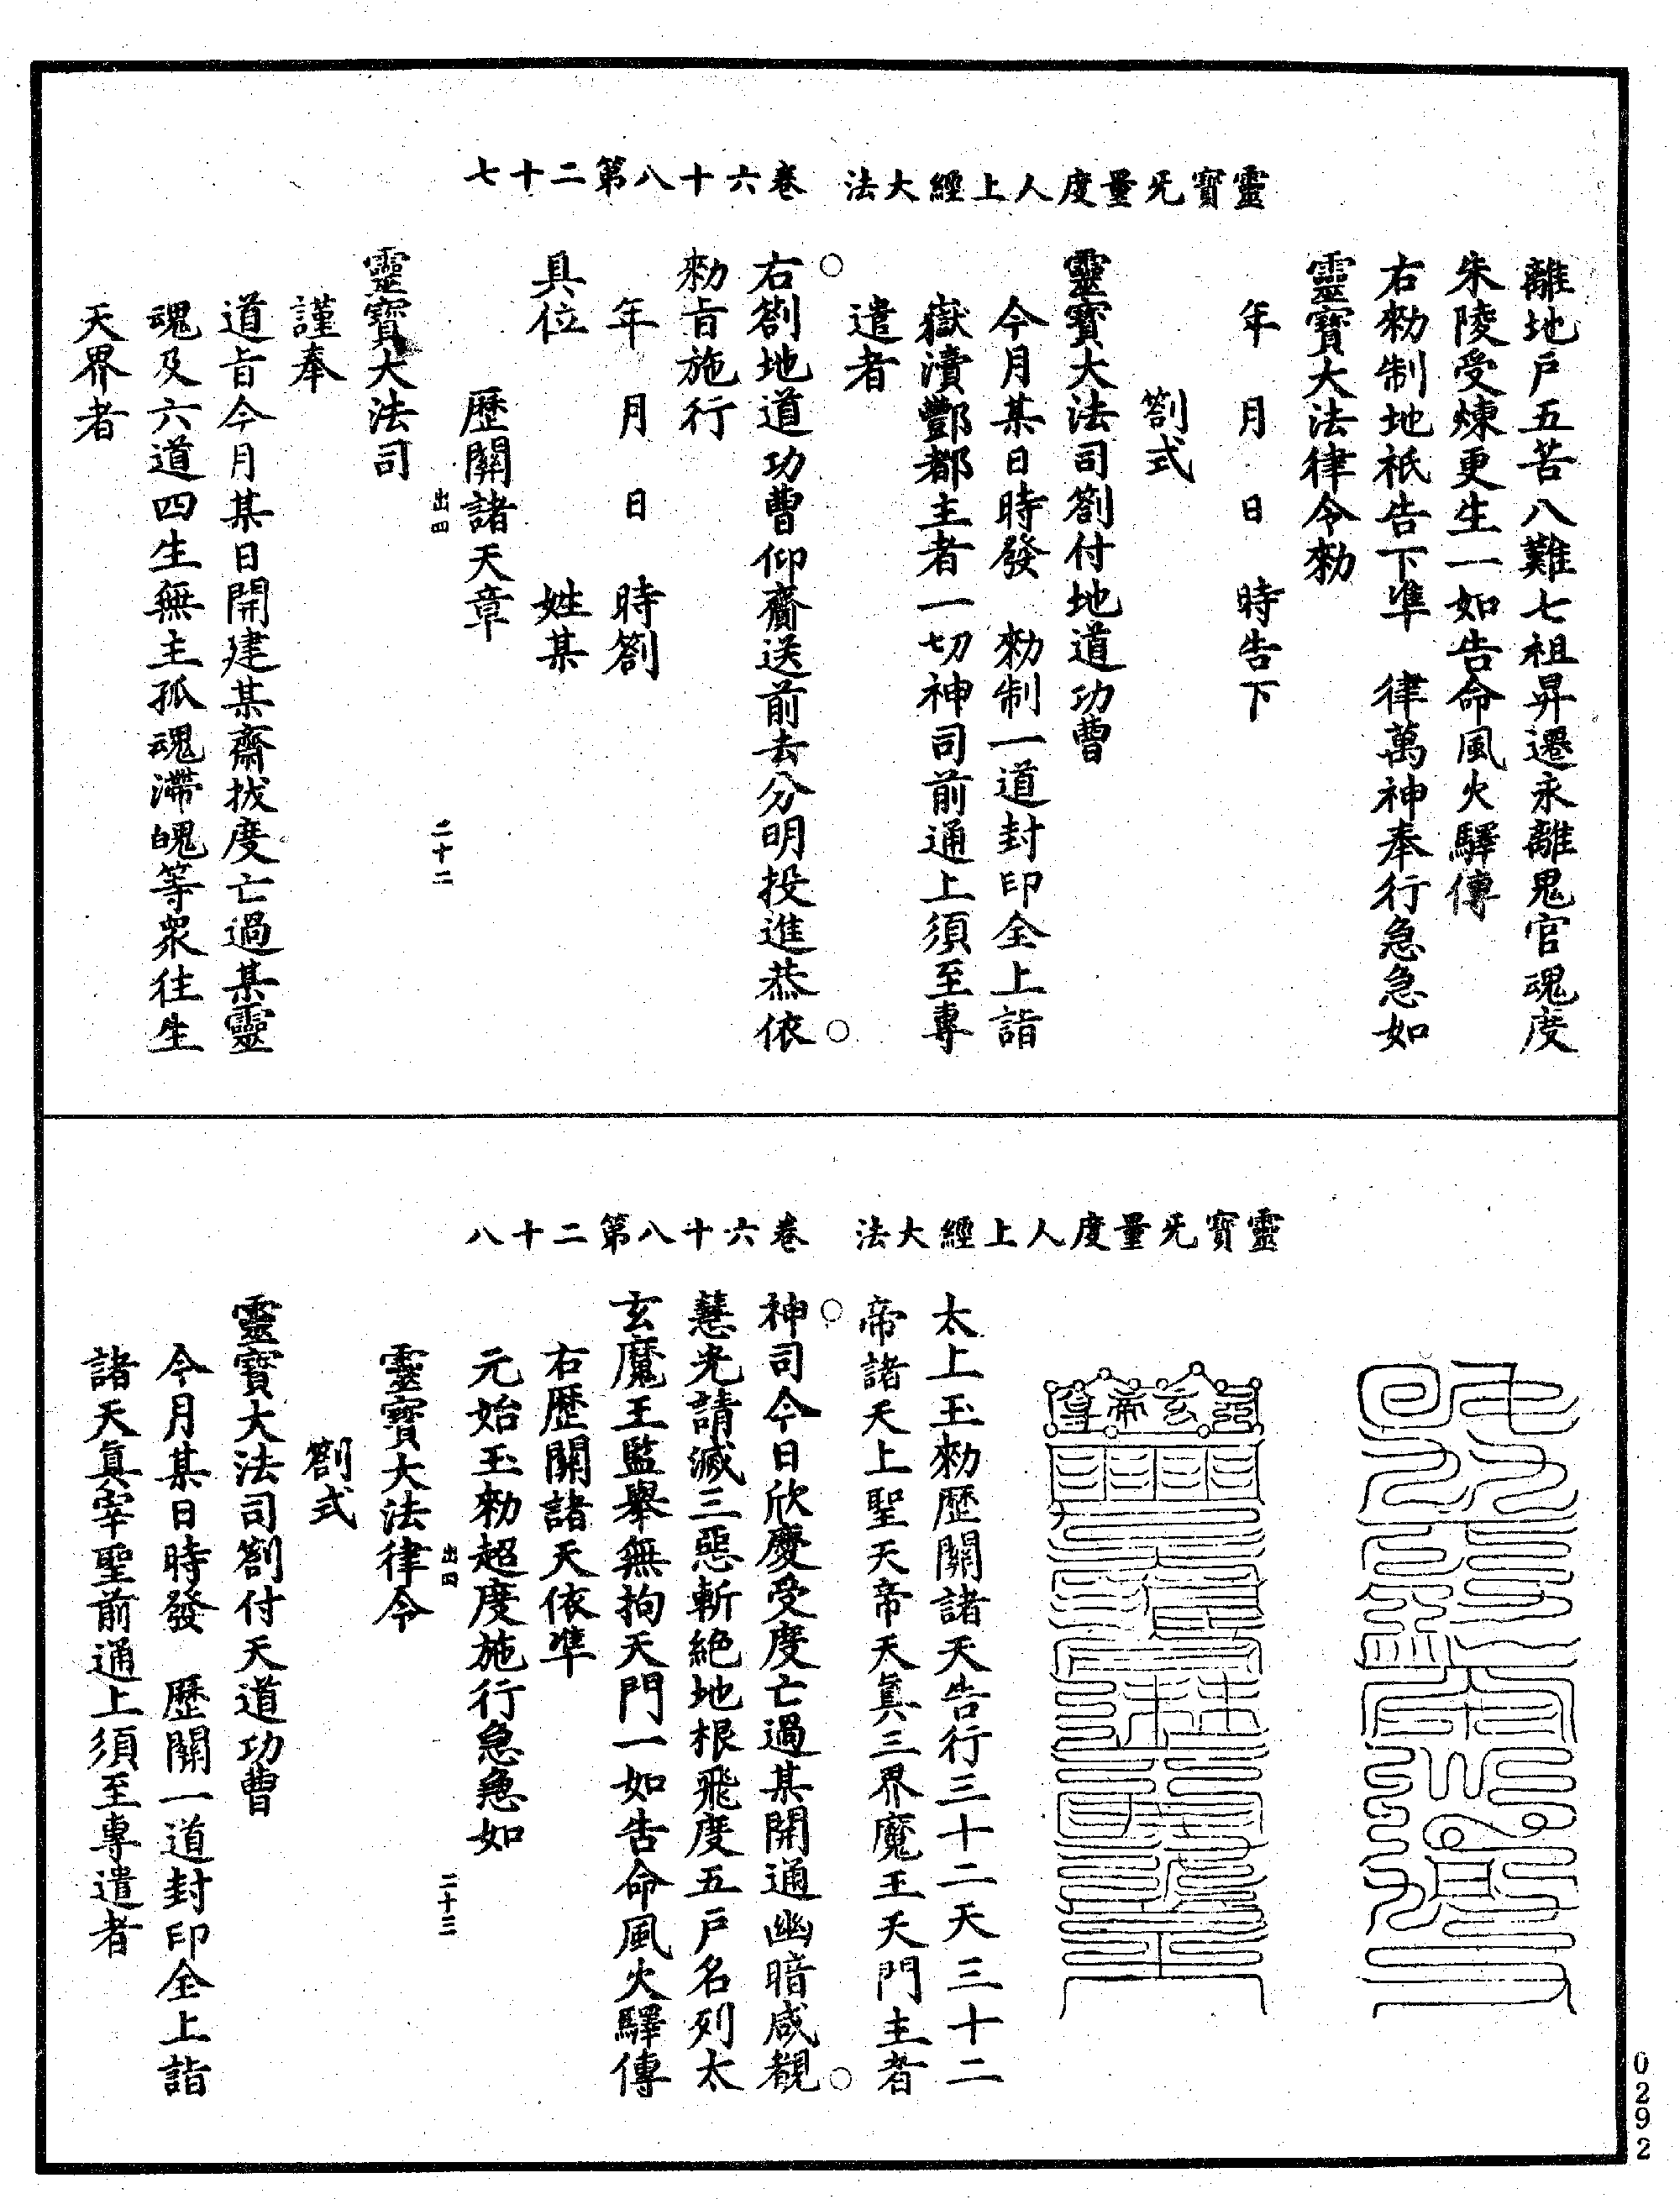 靈寶无量度人上經大法　卷六十八第二十七
離地戶五苦八難七祖昇遷永離鬼官魂度
朱陵受煉更生一如告命風火驛傳
右勑制地祇告下準　律萬神奉行急急如
靈寶大法律令勑
年　月　日　時告下
劄式
靈寶大法司劄付地道功曹
今月某日時發　勑制一道封印全上詣
嶽瀆酆都主者一切神司前通上須至專
遣者
右劄地道功曹仰齎送前去分明投進恭依
勑旨施行
年　月　日　時劄
具位　姓某
歷關諸天章
出四　二十二
靈寶大法司
謹奉
道旨今月某日開建某齋拔度亡過某靈
魂及六道四生無主孤魂滯魄等衆往生
天界者
靈寶无量度人上經大法　卷六十八第二十八
太上玉勑歷關諸天告行三十二天三十二
帝諸天上聖天帝天眞三界魔王天門主者
神司今日欣慶受度亡過某開通幽暗咸覩
慧光請滅三惡斬絕地根飛度五戶名列太
玄魔王監舉無拘天門一如告命風火驛傳
右歷關諸天依準
元始玉勑超度施行急急如
靈寶大法律令
出四　二十三
劄式
靈寶大法司劄付天道功曹
今月某日時發　歷關一道封印全上詣
諸天眞宰聖前通上須至專遣者
0292